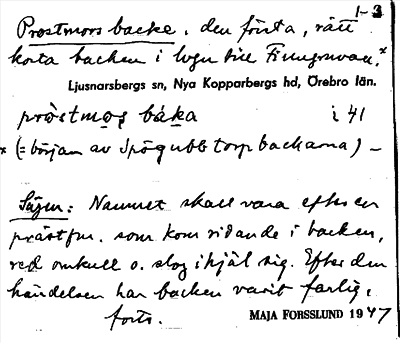 1-3
Prostmors backe, den första, rätt
korta backen i vägen till Finngruvan.*
Ljusnarsbergs sn, Nya Kopparbergs hd, Örebro län.
pròstmo̱s̱ bàka i 41
* (= början av Spögubbtorpbackarna) –
Sägen: Namnet skall vara efter en
prästfru. som kom ridande i backen,
red omkull o. slog ihjäl sig. Efter den
händelsen har backen varit farlig,
forts.
MAJA FORSSLUND 1947